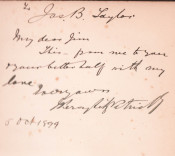 To Jas B. Taylor
My dear Jim
This from me to you
& your better half with my
love
Ever yours
5 Oct 1899